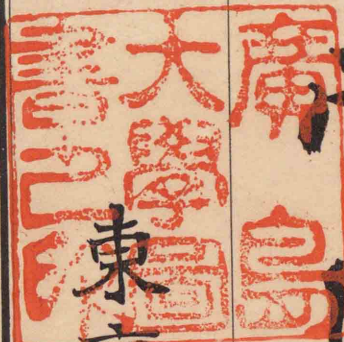 廣島
大學圖
書之印
東